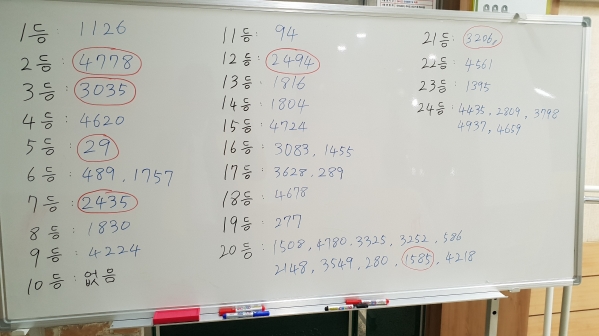 1등 : 1126
2등 : 4778
3등 : 3035
4등 : 4620
5등 : 29
6등 : 489, 1757
7등 : 2435
8등 : 1830
9등 : 4224
10등 : 없음
11등 : 94
12등 : 2494
13등 : 1816
14등 : 1804
15등 : 4724
16등 : 3083, 1455
17등 : 3628, 289
18등 : 4678
19등 : 277
20등 : 1508, 4780, 3325, 3252, 586
2148, 3549, 280, 1585, 4218
21등 : 3206
22등 : 4561
23등 : 1395
24등 : 4435, 2809, 3798
4937, 4659